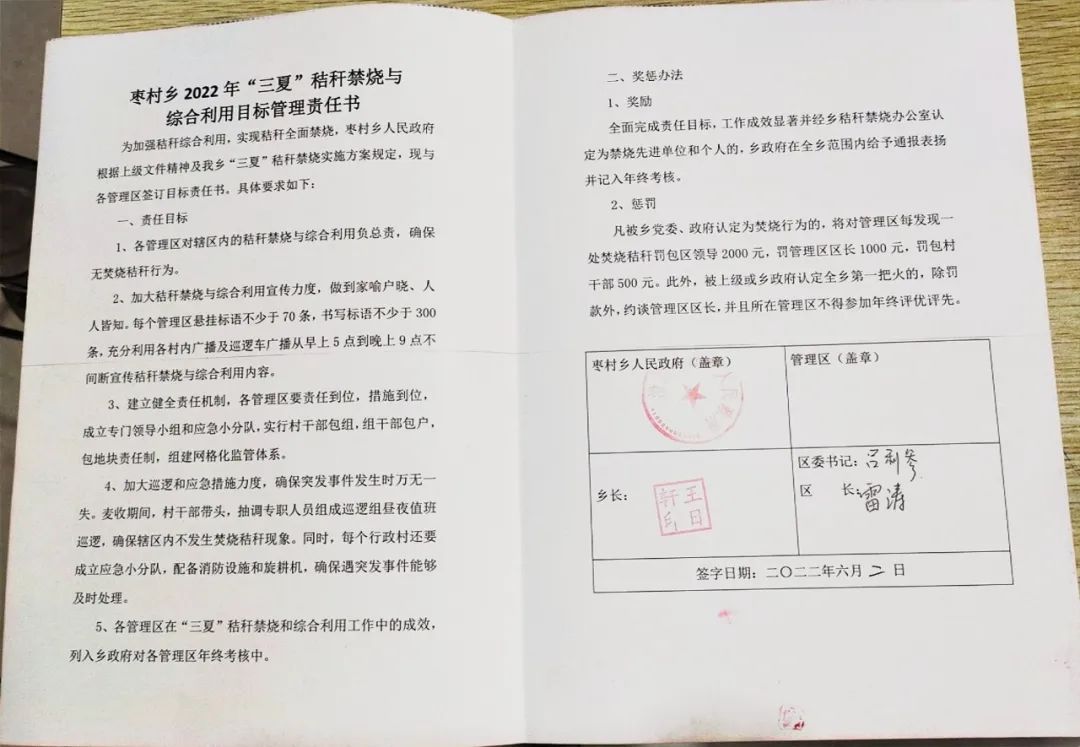 枣村乡2022年“三夏”秸秆禁烧与
综合利用目标管理责任书
为加强秸秆综合利用，实现秸秆全面禁烧，枣村乡人民政府
根据上级文件精神及我乡“三夏”秸秆禁烧实施方案规定，现与
各管理区签订目标责任书。具体要求如下：
一、责任目标
1、各管理区对辖区内的秸秆禁烧与综合利用负总责，确保
无焚烧秸秆行为。
2、加大秸秆禁烧与综合利用宣传力度，做到家喻户晓、人
人皆知。每个管理区悬挂标语不少于70条，书写标语不少于300
条，充分利用各村内广播及巡逻车广播从早上5点到晚上9点不
间断宣传秸秆禁烧与综合利用内容。
3、建立健全责任机制，各管理区要责任到位，措施到位，
成立专门领导小组和应急小分队，实行村干部包组，组干部包户，
包地块责任制，组建网格化监管体系。
4、加大巡逻和应急措施力度，确保突发事件发生时万无一
失。麦收期间，村干部带头，抽调专职人员组成巡逻组昼夜值班
巡逻，确保辖区内不发生焚烧秸秆现象。同时，每个行政村还要
成立应急小分队，配备消防设施和旋耕机，确保遇突发事件能够
及时处理。
5、各管理区在“三夏”秸秆禁烧和综合利用工作中的成效，
列入乡政府对各管理区年终考核中。
二、奖惩办法
1、奖励
全面完成责任目标，工作成效显著并经乡秸秆禁烧办公室认
定为禁烧先进单位和个人的，乡政府在全乡范围内给予通报表扬
并记入年终考核。
2、惩罚
凡被乡党委、政府认定为焚烧行为的，将对管理区每发现一
处焚烧秸秆罚包区领导2000元，罚管理区区长1000元，罚包村
干部500元。此外，被上级或乡政府认定全乡第一把火的，除罚
款外，约谈管理区区长，并且所在管理区不得参加年终评优评先。
枣村乡人民政府（盖章）
管理区（盖章）
乡长：
王日
轩印
区委书记：吕利
区 长：雷涛
签字日期：二〇二二年六月二日